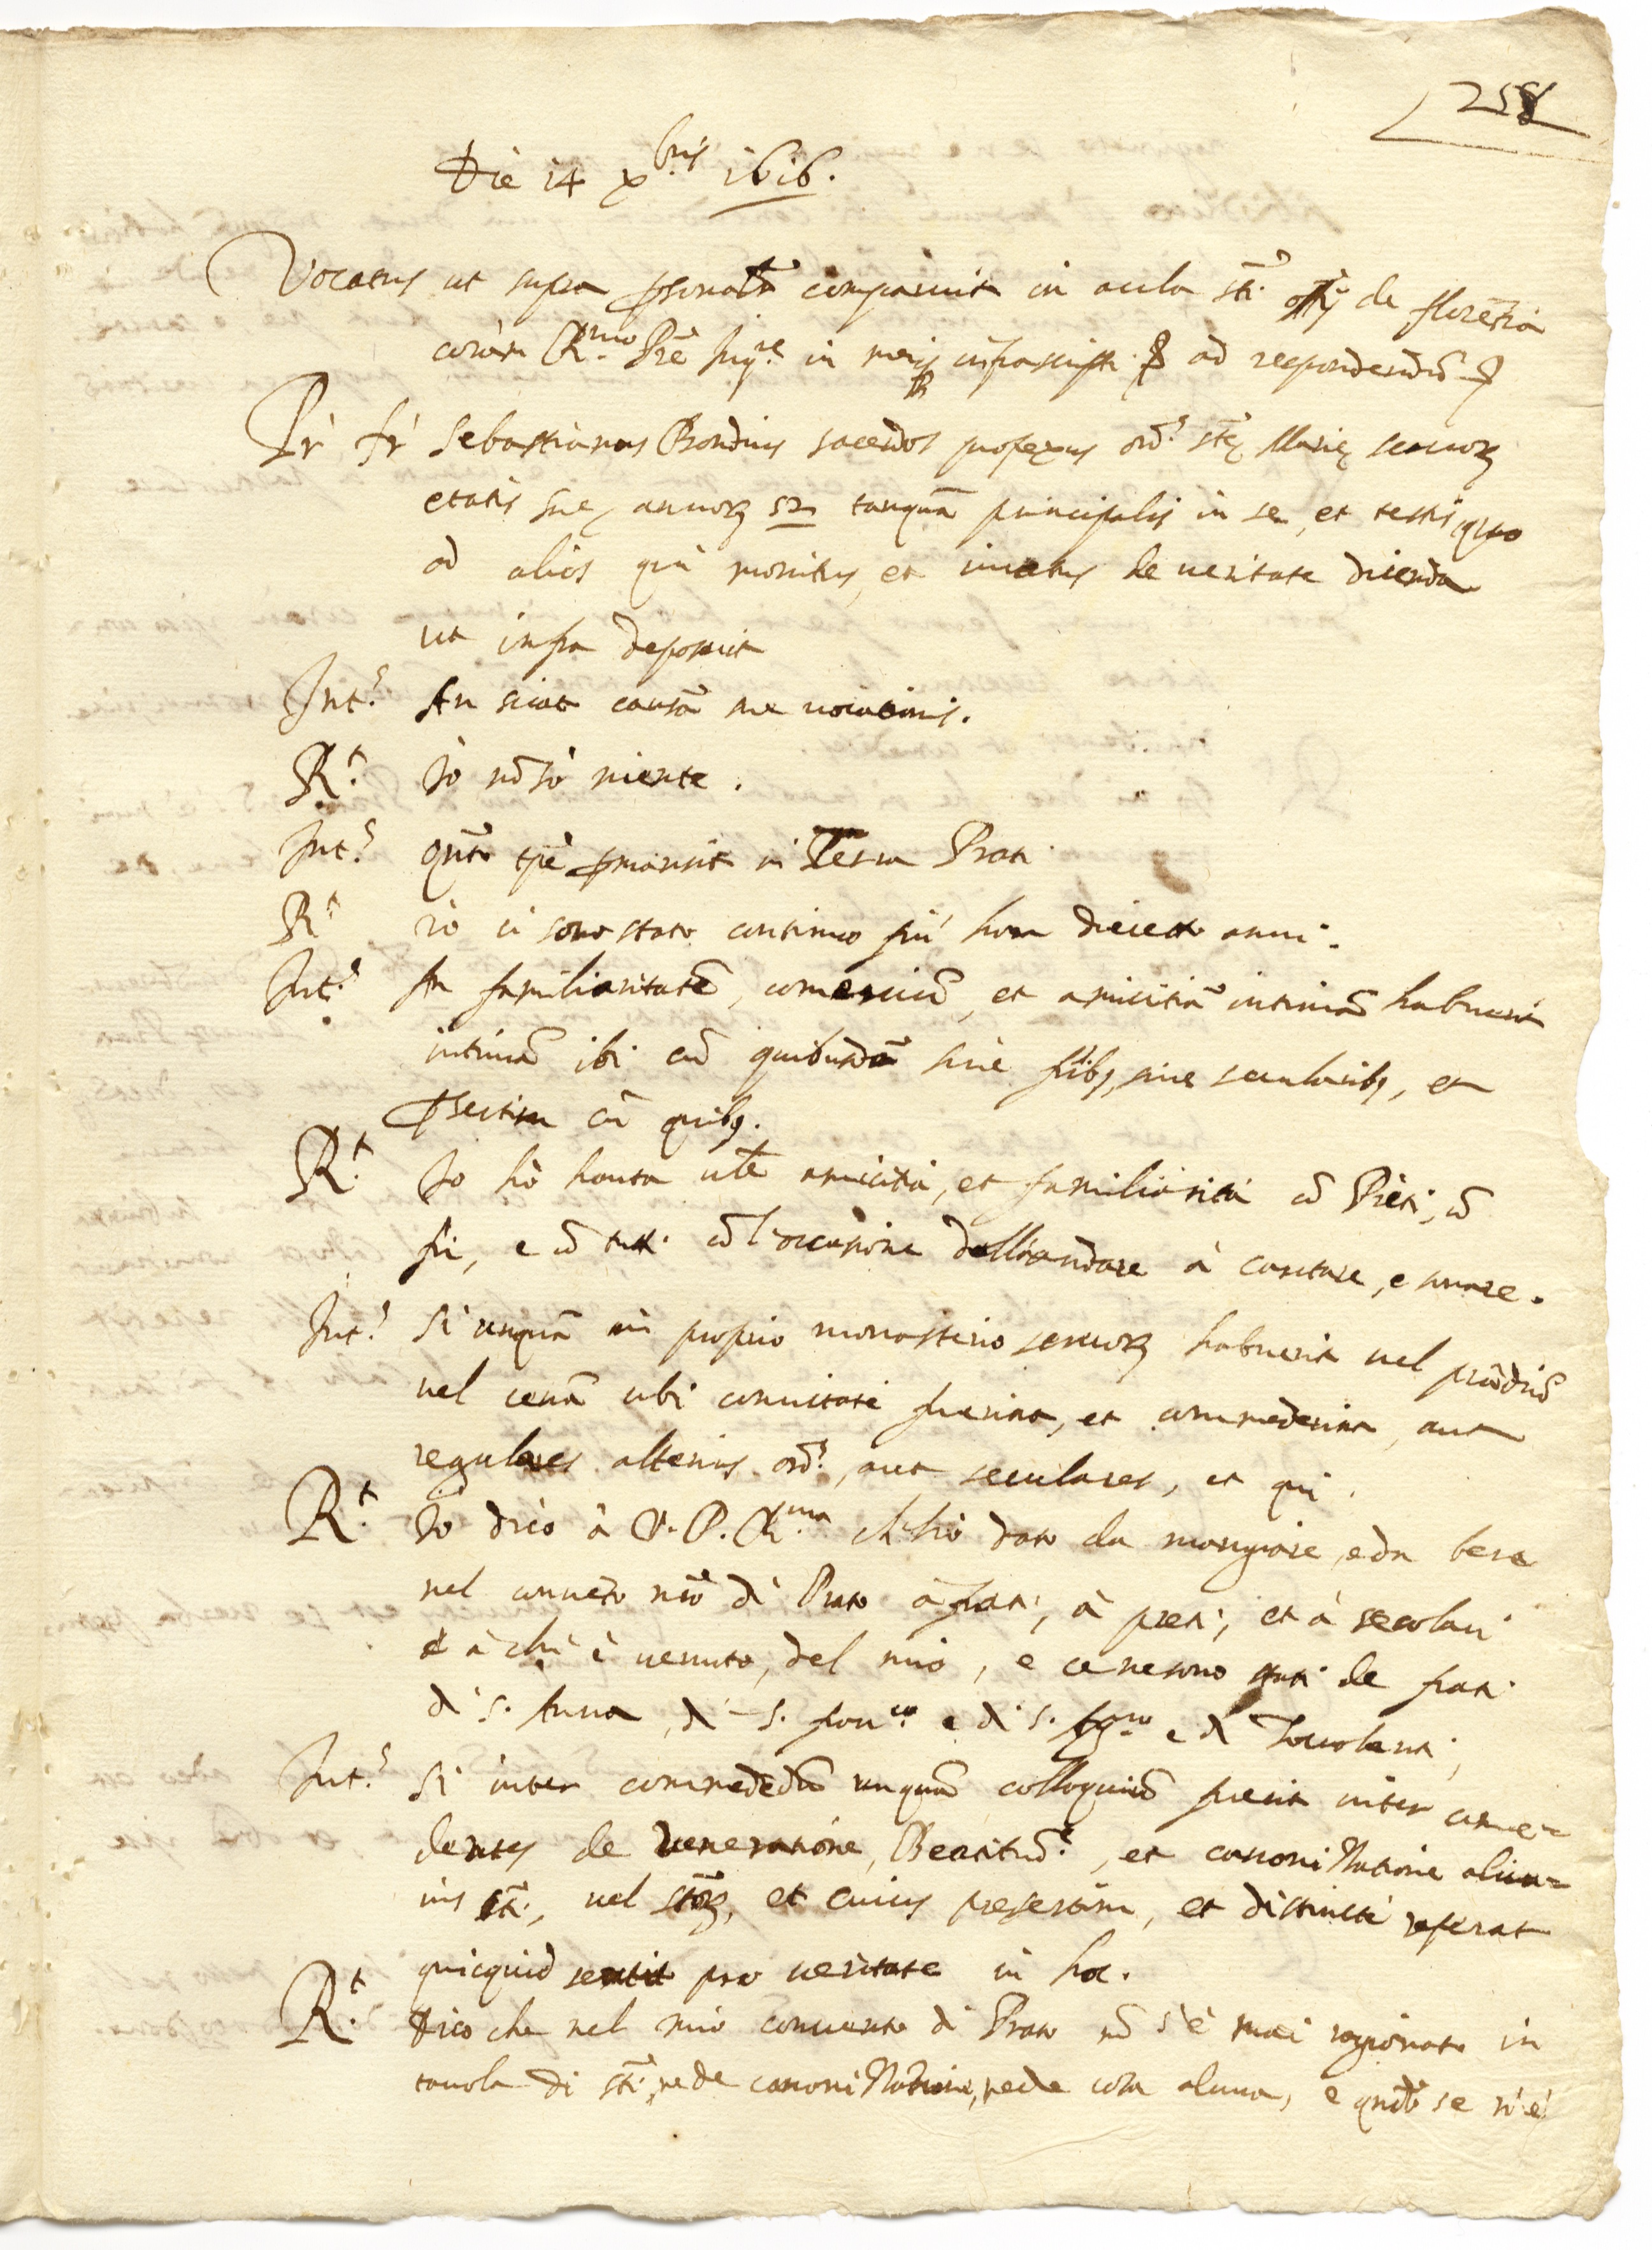 258
Die 14 xbris 1616.
Vocatus ut supra psonalr comparuit in aula sti offij de florẽtia
coram Rmo Pre Inqre in meiq infrascripti & ad respondendũ &
Pr fr Sebastianus Bondius sacerdos professus ord.s ste Marie seruorz
etatis sue annorz 52 tanquã principalis in se, et testis quo
ad alios qui monitus, et iuratus de ueritate dicenda
ut infra deposuit
Int.s An sciat causã sue uocationis.
R.t Io nõ sò niente.
Int.s Qnto tpe pmansit in Terra Prati
R.t io ci sono stato continuo piu hora dicietto anni.
Int.s An familiaritatẽ, comerciũ, et amicitiã intimã habuerit
intimã ibi cũ quibusdã siue fribq, siue secularibq, et
psertim cũ quibq.
R.t Io hò hauta ulr amicitia, et familiarità cõ Preti, cõ
fri, e cõ tutti cõ l'occasione dell'andare à cantare, e sonare.
Int.s Si unquã in proprio monasterio seruorz habuerit uel prãdiũ
uel cenã ubi conuitati fuerint, et commederint, aut
regulares alterius ord.s, aut seculares, et qui.
R.t Io dico à V. P. Rma ch'hò dato da mangiare, e da bere
nel conuẽto nro di Prato à frati, à preti, et à secolari
e à chi è uenuto, del mio, e ce ne sono stati de frati
di S. Anna, di S. franco e di S. Agno e di Zoccolanti,
Int.s Si inter commedẽdũ unquã colloquiũ fuerit inter come=
dentes de ueneratione, Beatitud.e, et canonizatione alicu=
ius sti, uel storz, et cuius presertim, et distincte referat
quicquid sentit pro ueritate in hoc.
R.t Dico che nel mio conuento di Prato nõ s'è mai ragionato in
tauola di sti, ne de canonizatione, ne de cosa alcuna, e qndo se n'è